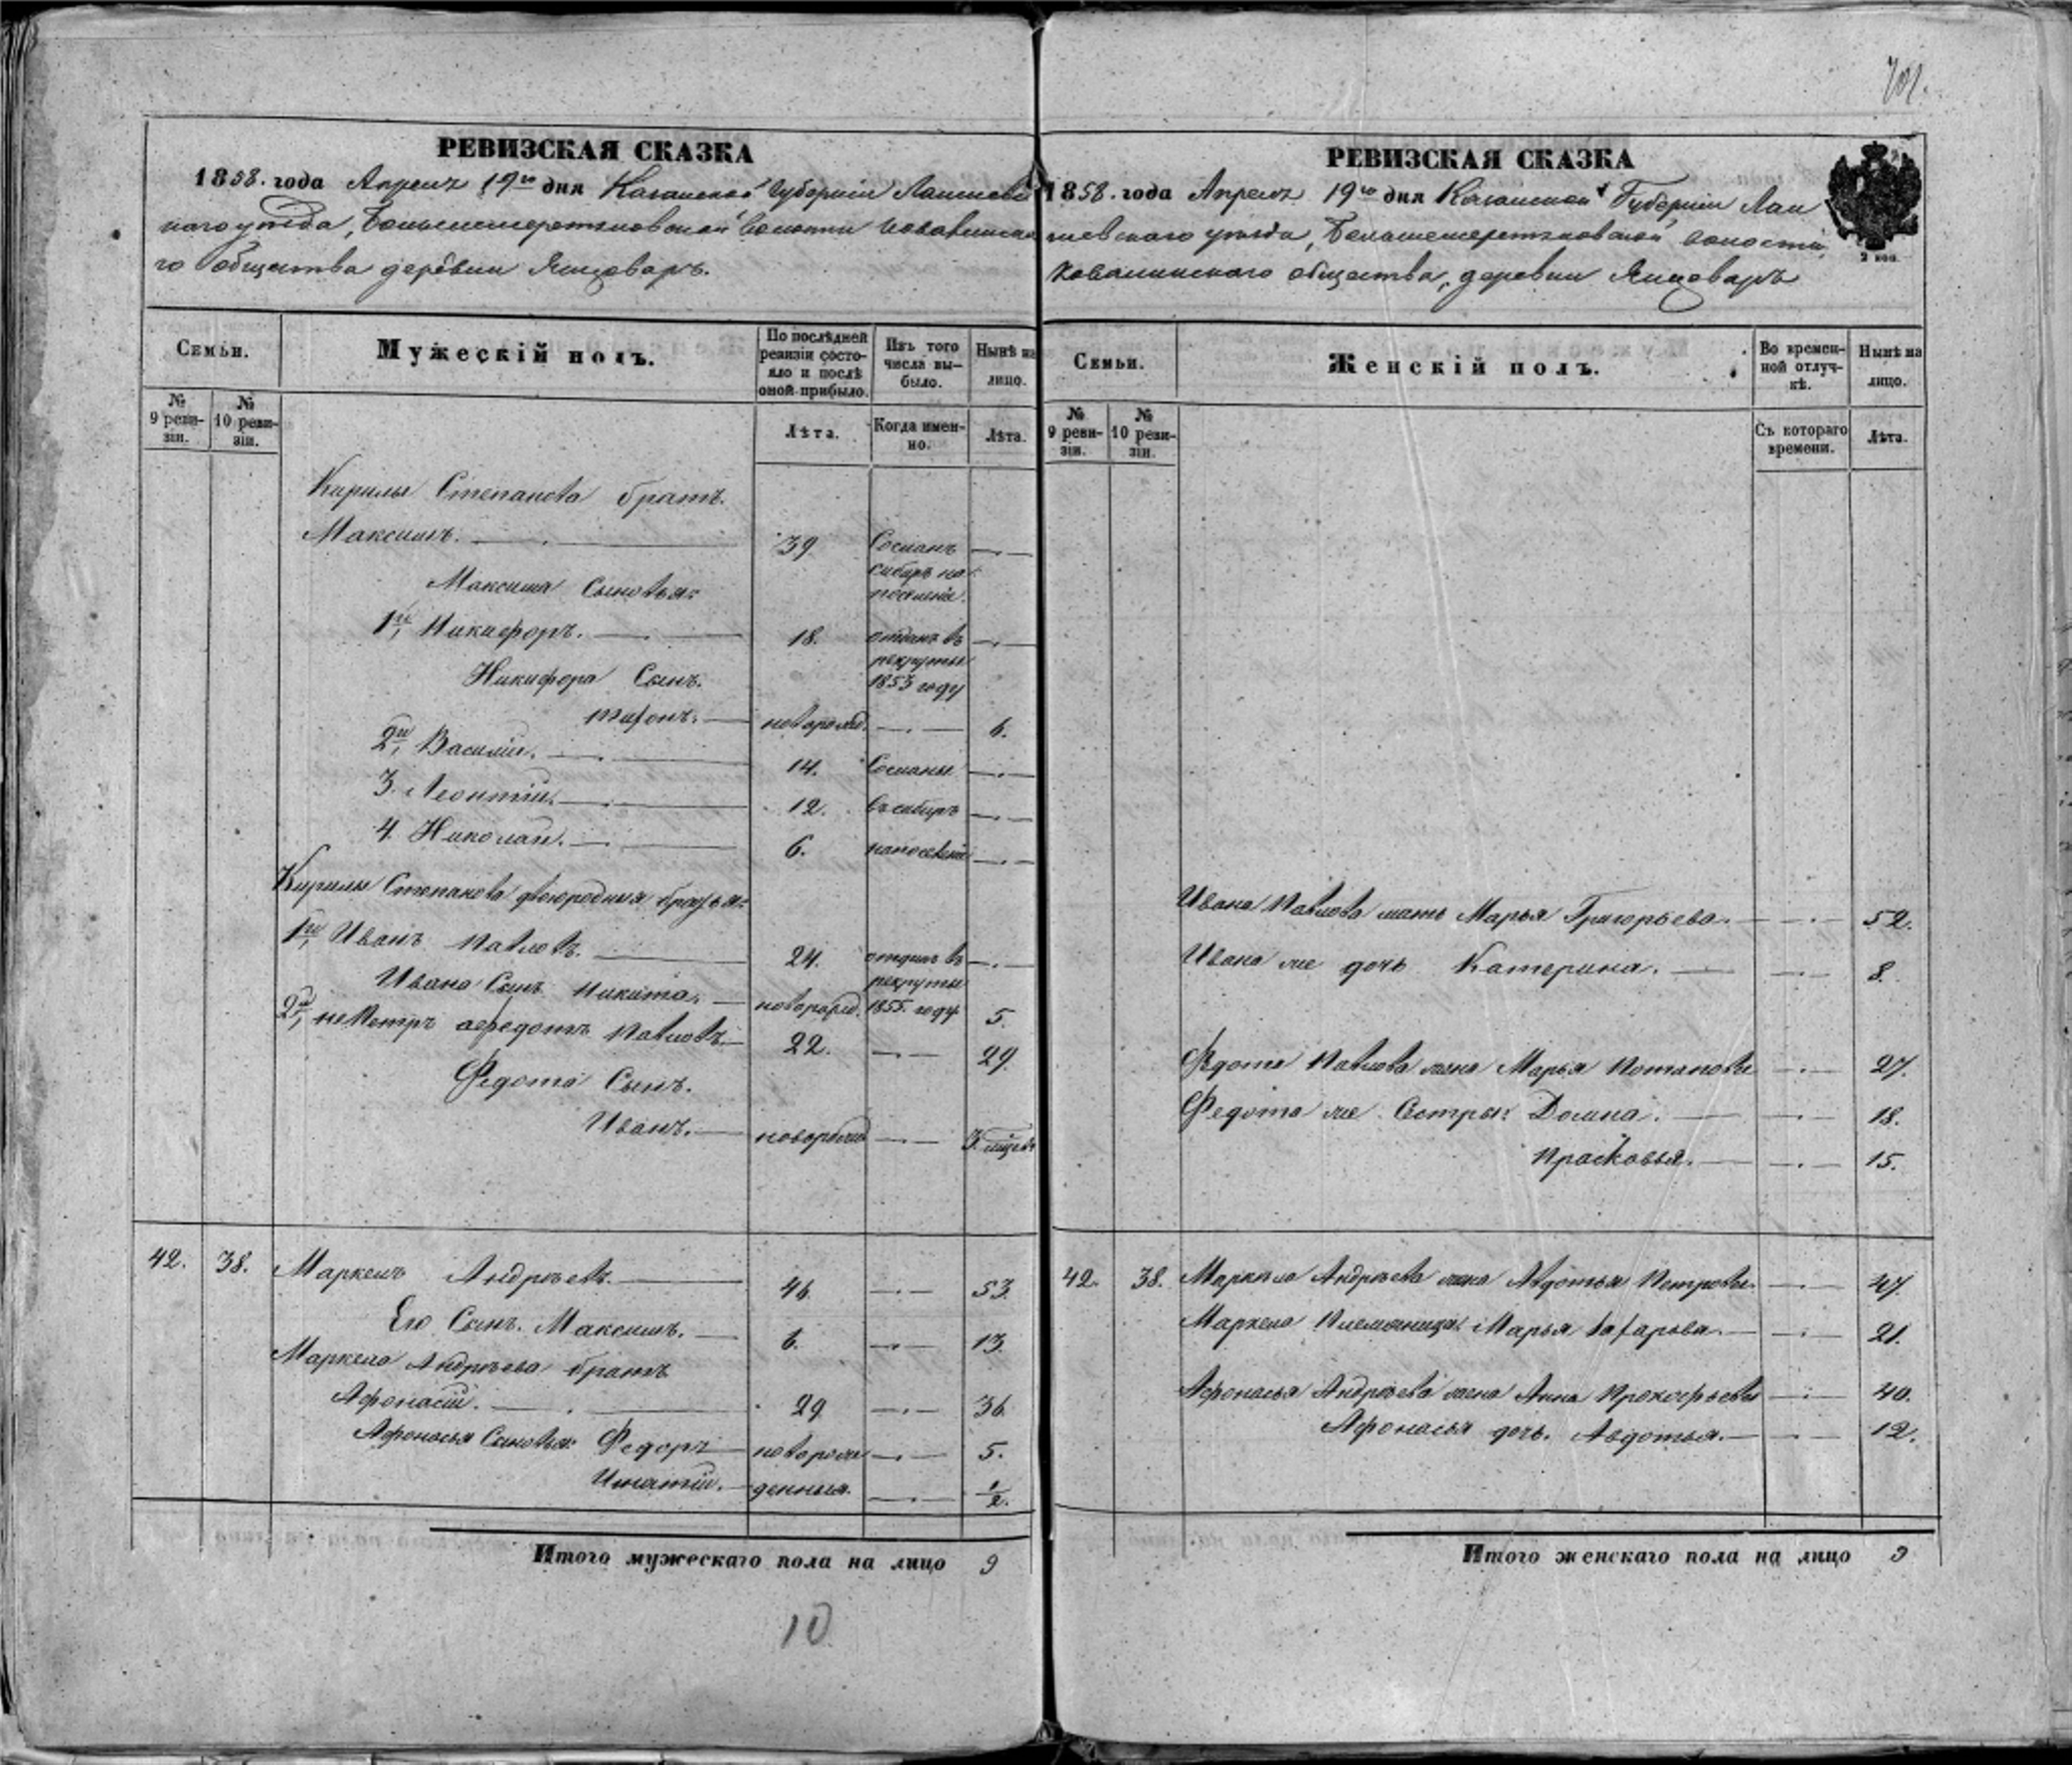 701.
РЕВИЗСКАЯ СКАЗКА
1858. года Апреля 19го дня Казанской Губерніи Лаишевс
каго уѣзда, Ковалинска
го общества деревни Янцоваръ.
Семьи.
Мужескій полъ.
По послѣдней ревизіи состо-
яло и послѣ оной прибыло.
Изъ того числа вы-
было.
Нынѣ на лицо.
№ 9 реви-
зіи.
№ 10 реви-
зіи.
Лѣта.
Когда имен-
но.
Лѣта.
Кирилы Степанова братъ.
Максимъ. 39. Сосланъ
сибирь на
поселеніе.
Максима Сыновья:
1й, Никифоръ. 18. отданъ въ
рекруты
Никифора Сынъ. 1853 году
новорожд. 6.
2й, Василій. 14. Сосланы
3. Леонтій. 12. въ сибирь
4. Николай. 6. на поселеніе
Кирилы Степанова двоюродныя братья:
1й, Иванъ Павловъ. 24. отданъ въ
рекруты
Ивана Сынъ Никита. новорожд. 1855. году 5.
2й, не Петръ а Федотъ Павловъ. 22. 29.
Федота Сынъ.
Иванъ. новорожд. 3. мѣсяц.
42. 38. Маркелъ Андрѣевъ. 46. 53.
Его Сынъ. Максимъ. 6. 13.
Маркела Андрѣева братъ
Афонасій. 29 36.
Афонасья Сыновья: Федоръ новорож 5.
Игнатій. денныя. 1/2.
Итого мужескаго пола на лицо 9
10
РЕВИЗСКАЯ СКАЗКА
1858. года Апреля 19го дня Казанской Губерніи Лаи
шевскаго уѣзда, волости,
Ковалинскаго общества, деревни Янцоваръ
2 коп.
Семьи.
Женскій полъ.
Во времен-
ной отлуч-
кѣ.
Нынѣ на лицо.
№ 9 реви-
зіи.
№ 10 реви-
зіи.
Съ котораго времени.
Лѣта.
Ивана Павлова мать Марья Григорьева. 52.
Ивана же дочь Катерина. 8.
Федота Павлова жена Марья Потапова 27.
Федота же Сестры: Домна. 18.
Прасковья. 15.
42. 38. Маркела Андрѣева жена Авдотья Петрова. 47.
Маркела Племянница: Марья Захарова. 21.
Афонасья Андрѣева жена Анна Прокофьева 40.
Афонасья дочь. Авдотья. 12.
Итого женскаго пола на лицо 9